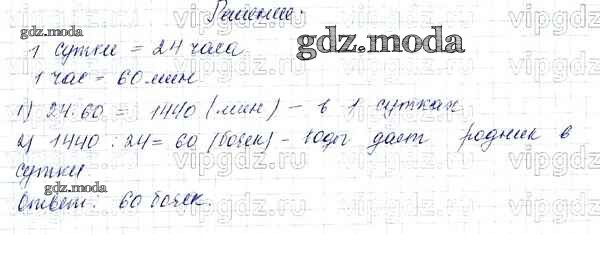 Решение.
1 сутки = 24 часа
gdz.moda
1 час = 60 мин
1) 24·60 = 1440 (мин) – в 1 сутках
2) 1440 : 24 = 60 (бочек) – воды даст родник в
сутки
gdz.moda
Ответ: 60 бочек.
vipgdz
vipgdz
vipgdz
vipgdz
vipgdz
vipgdz